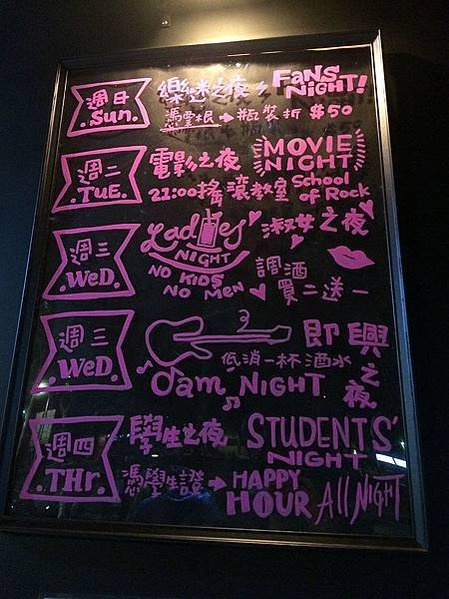 週日
Sun.
樂迷之夜
FANS NIGHT!
憑票根→瓶裝折 $50
週二
TUE.
電影之夜
MOVIE NIGHT
21:00搖滾教室
School of Rock
週三
WeD.
Ladies NIGHT
淑女之夜
NO KIDS
NO MeN
調酒
買二送一
週三
WeD.
即興之夜
低消一杯酒水
Jam NIGHT
週四
THr.
學生之夜
STUDENTS' NIGHT
憑學生證→
HAPPY HOUR
All NIGHT